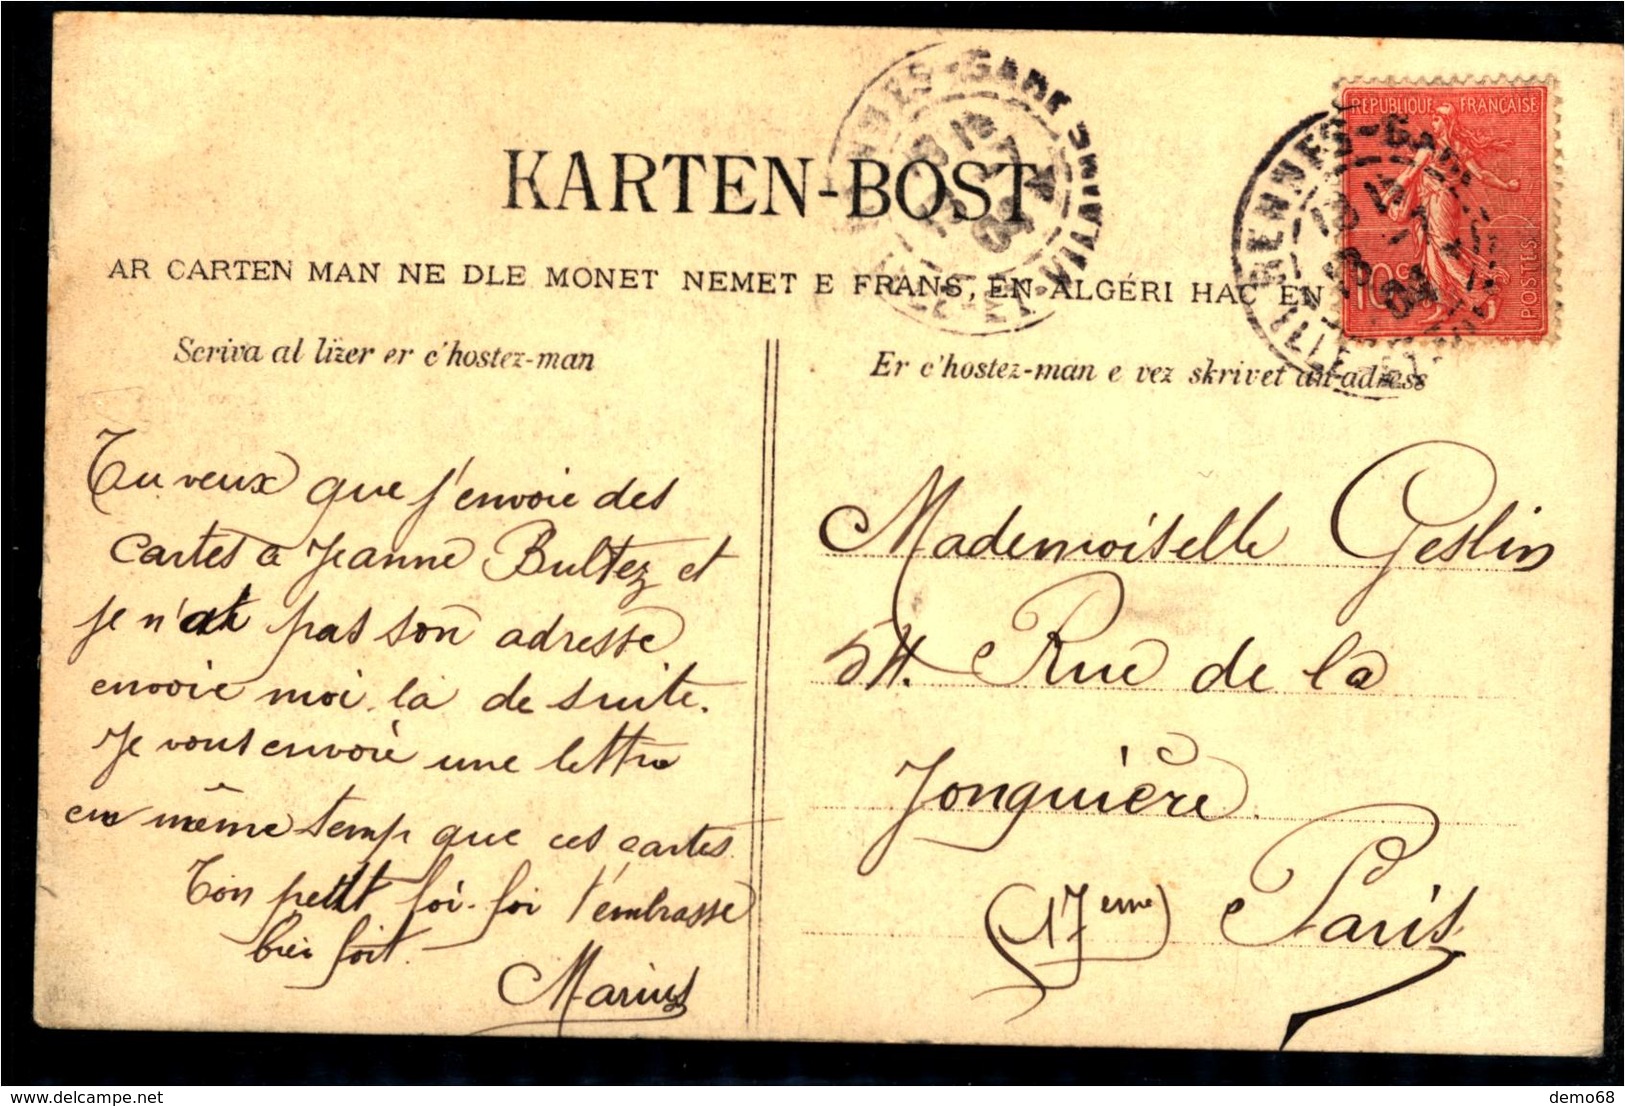 KARTEN-BOST
AR CARTEN MAN NE DLE MONET NEMET E FRANS, EN ALGÉRI HAC EN
REPUBLIQUE FRANÇAISE
10c
POSTES
RENNES-GARE
Scriva al lizer er c'hostez-man
Er c'hostez-man e vez skrivet an adress
Tu veux que j'envoie des
cartes a Jeanne Bultez et
je n'ai pas son adresse
envoie moi la de suite.
Je vous envoie une lettre
en même temps que ces cartes
Ton petit foi-foi t'embrasse
bien fort.
Marius
Mademoiselle Geslin
54. Rue de la
Jonquière.
(17eme) Paris
delcampe.net
demo68